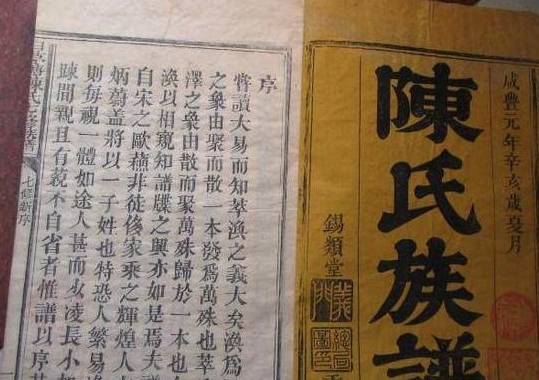 咸豐元年辛亥歲夏月
陳氏族譜
錫類堂
序
嘗讀大易而知萃渙之義大矣渙爲
之象由聚而散一本發爲萬殊也萃
澤之象由散而聚萬殊歸於一本也
渙以相窺知譜牒之興亦如是焉夫譜
自宋之歐蘇非徒侈家乘之輝煌人
炳蔫盖將以一子姓也特恐人繁易
則每視一體如途人甚而少凌長小加
踈間親且有藐不自省者惟譜以序其
七修新序